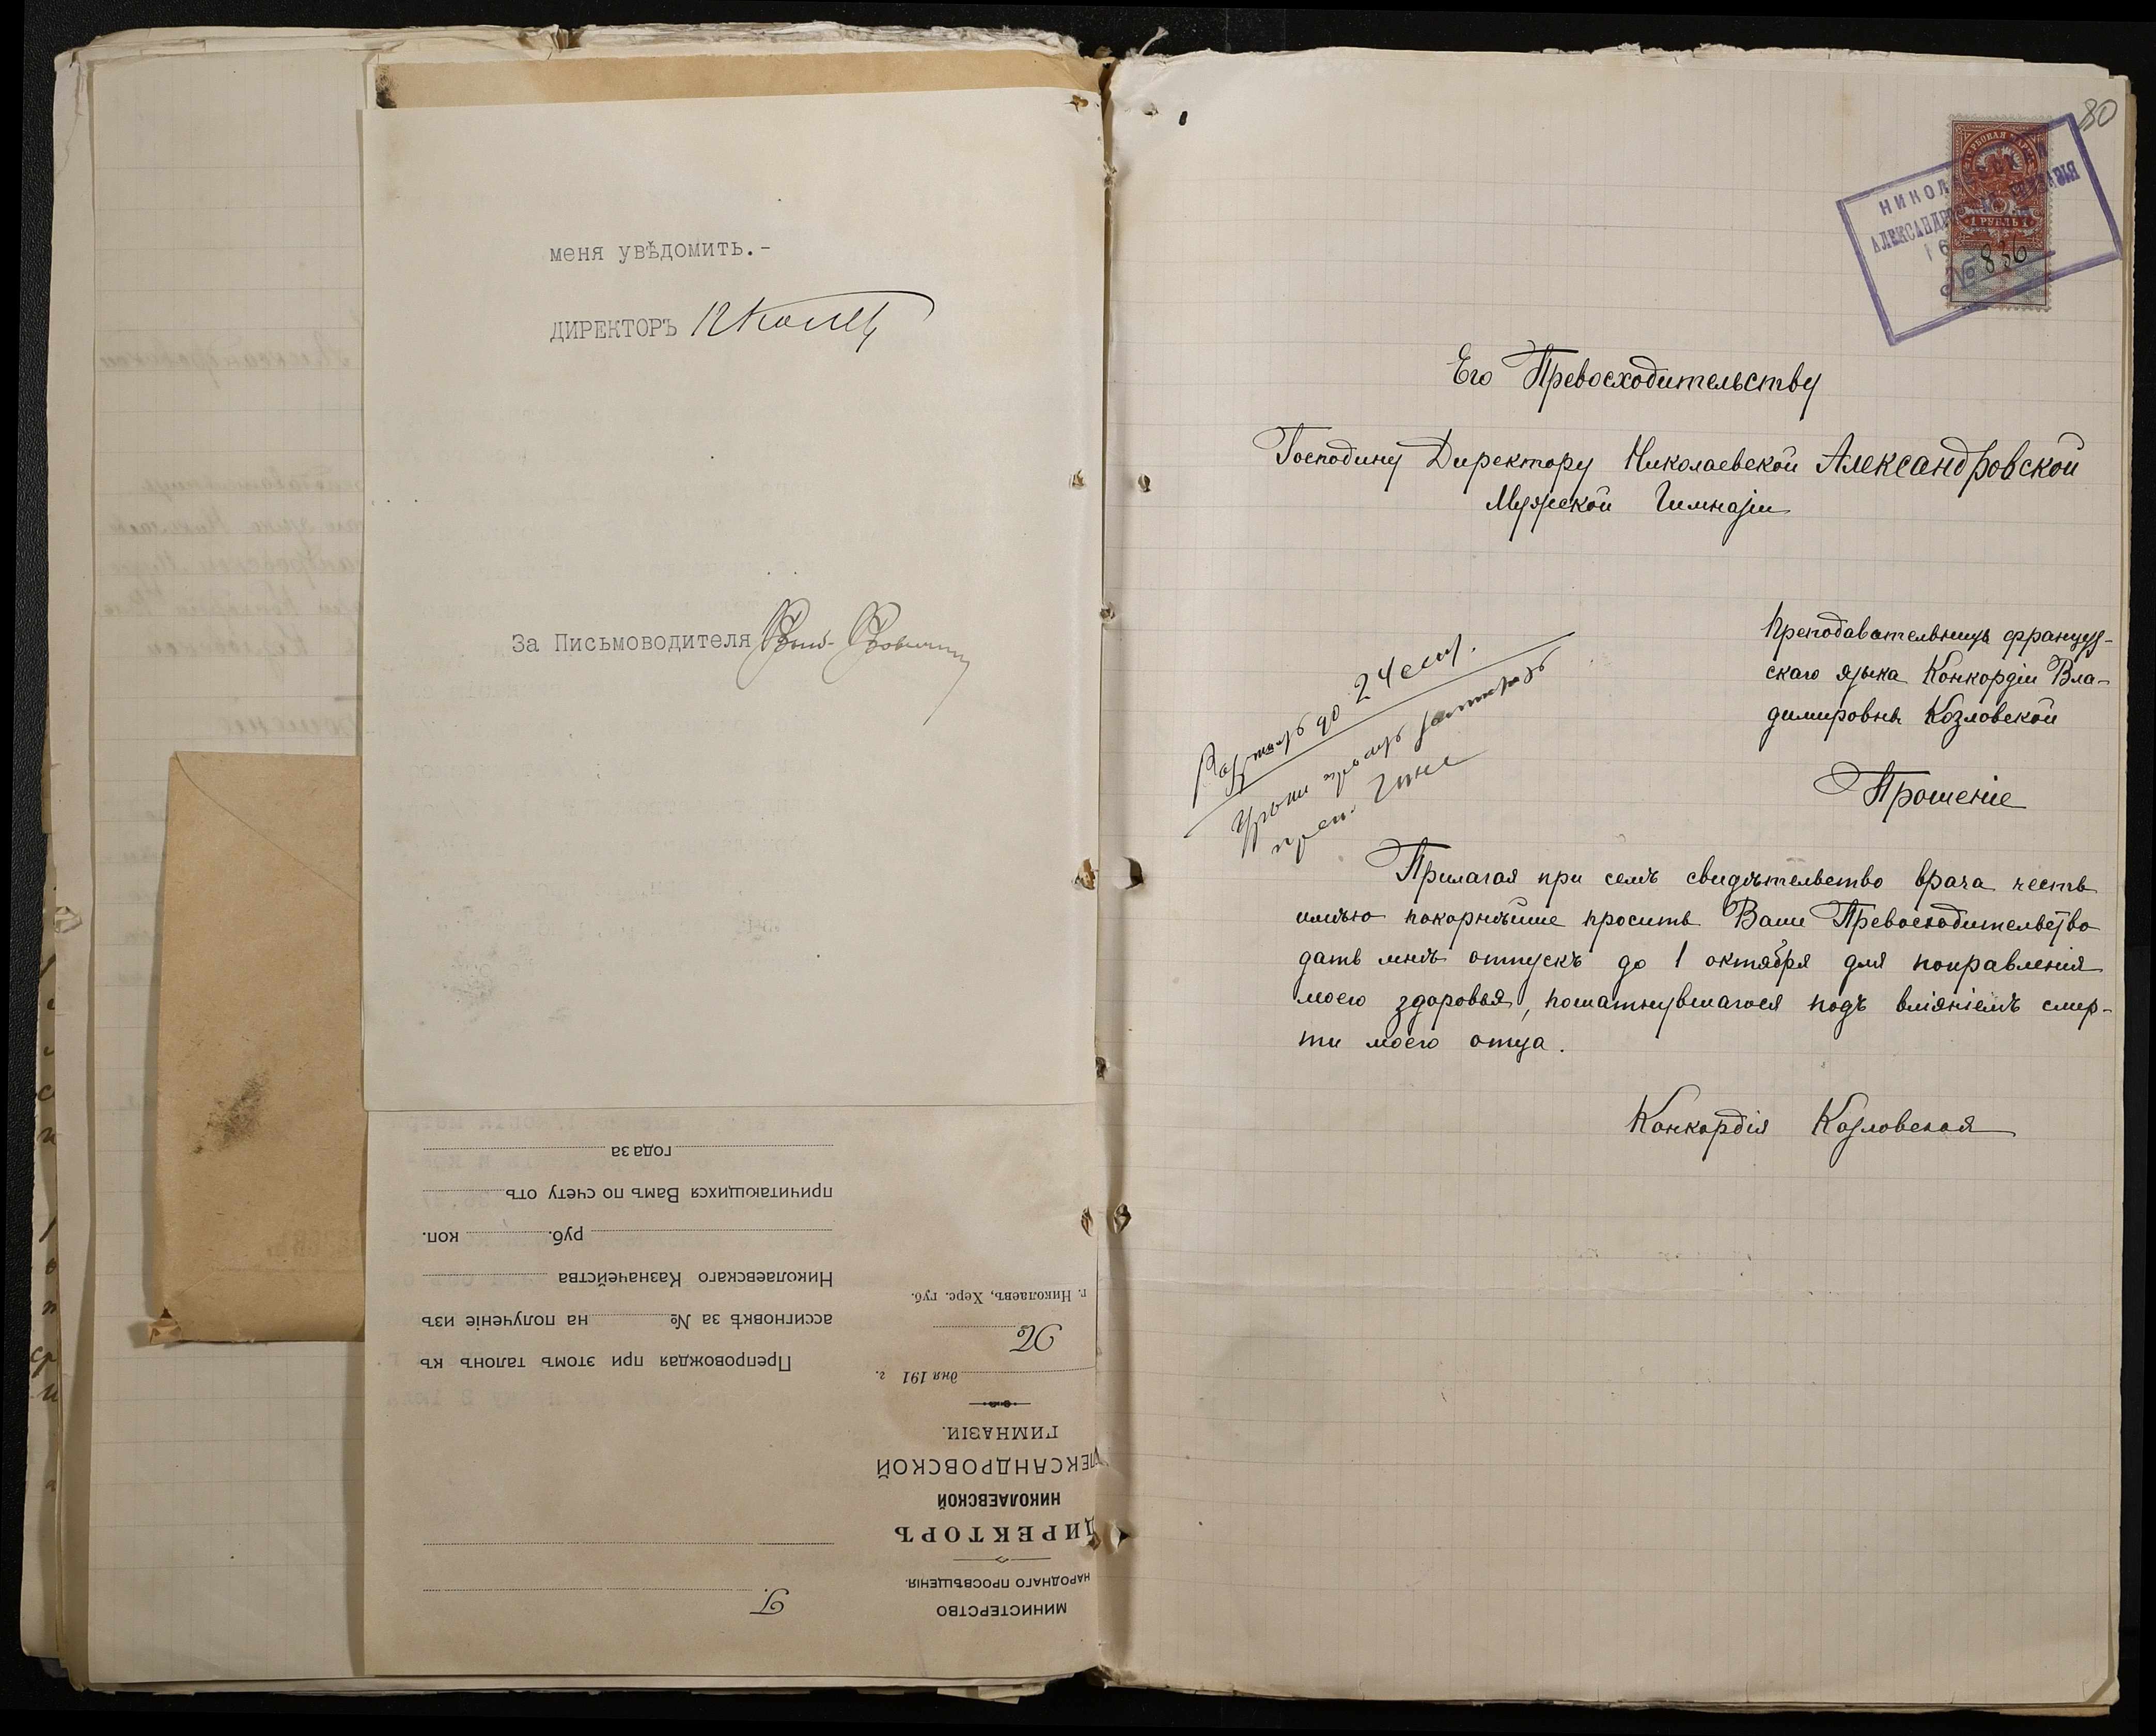 меня увѣдомить.-
ДИРЕКТОРЪ
За Письмоводителя
МИНИСТЕРСТВО
НАРОДНАГО ПРОСВѢЩЕНІЯ.
ДИРЕКТОРЪ
НИКОЛАЕВСКОЙ
АЛЕКСАНДРОВСКОЙ
ГИМНАЗІИ.
дня 191 г.
№
г. Николаевъ, Херс. губ.
Г.
Препровождая при этомъ талонъ къ
ассигновкѣ за № на полученіе изъ
Николаевскаго Казначейства
руб. коп.
причитающихся Вамъ по счету отъ
года за
80
ГЕРБОВАЯ МАРКА
1 РУБЛЬ 1
№ 836
Его Превосходительству
Господину Директору Николаевской Александровской
Мужской Гимназіи
Преподавательницы француз-
скаго языка Конкордіи Вла-
димировны Козловской
Прошеніе
до 24 сент.
Прилагая при семъ свидѣтельство врача честь
имѣю покорнѣйше просить Ваше Превосходительство
дать мнѣ отпускъ до 1 октября для поправленія
моего здоровья, пошатнувшагося подъ вліяніемъ смер-
ти моего отца.
Конкордія Козловская